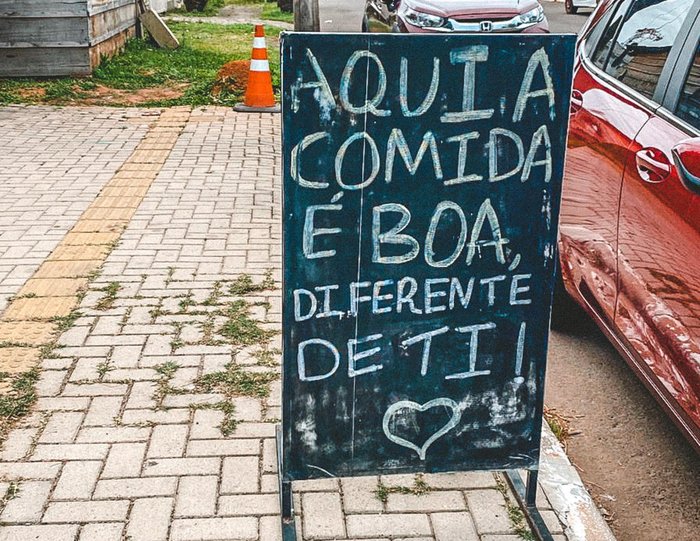 AQUI A
COMIDA
É BOA,
DIFERENTE
DE TI!